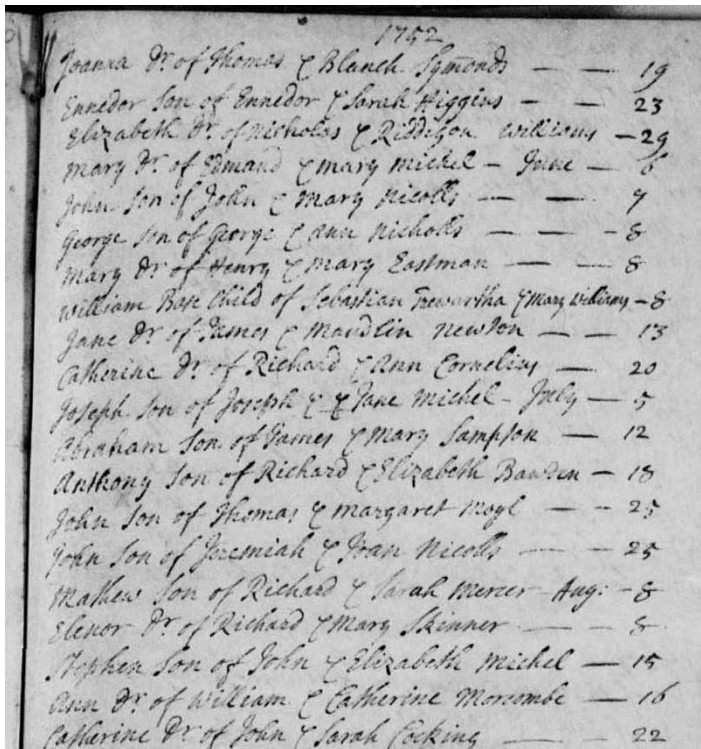 1752
Joanna Dr. of Thomas & Blanch Symonds — — 19
Ennedor Son of Ennedor & Sarah Higgins — — 23
Elizabeth Dr. of Nicholas & Williams — 29
Mary Dr. of Edmand & Mary Michel — June — 6
John Son of John & Mary Nicolls — — 7
George Son of George & Ann Nicholls — — — 8
Mary Dr. of Henry & Mary Eastman — — 8
William Base Child of Sebastian Trewartha & Mary Williams — 8
Jane Dr. of James & Maudlin Newton — — 13
Catherine Dr. of Richard & Ann Cornelius — 20
Joseph Son of Joseph & & Jane Michel — July — 5
Abraham Son of James & Mary Sampson — 12
Anthony Son of Richard & Elizabeth Bawden — 18
John Son of Thomas & Margaret Moyl — — 25
John Son of Jeremiah & Joan Nicolls — — 25
Mathew Son of Richard & Sarah Mercer — Aug: — 8
Elenor Dr. of Richard & Mary Skinner — — 8
Stephen Son of John & Elizabeth Michel — 15
Ann Dr. of William & Catherine Morcombe — 16
Catherine Dr. of John & Sarah Cocking — — 22